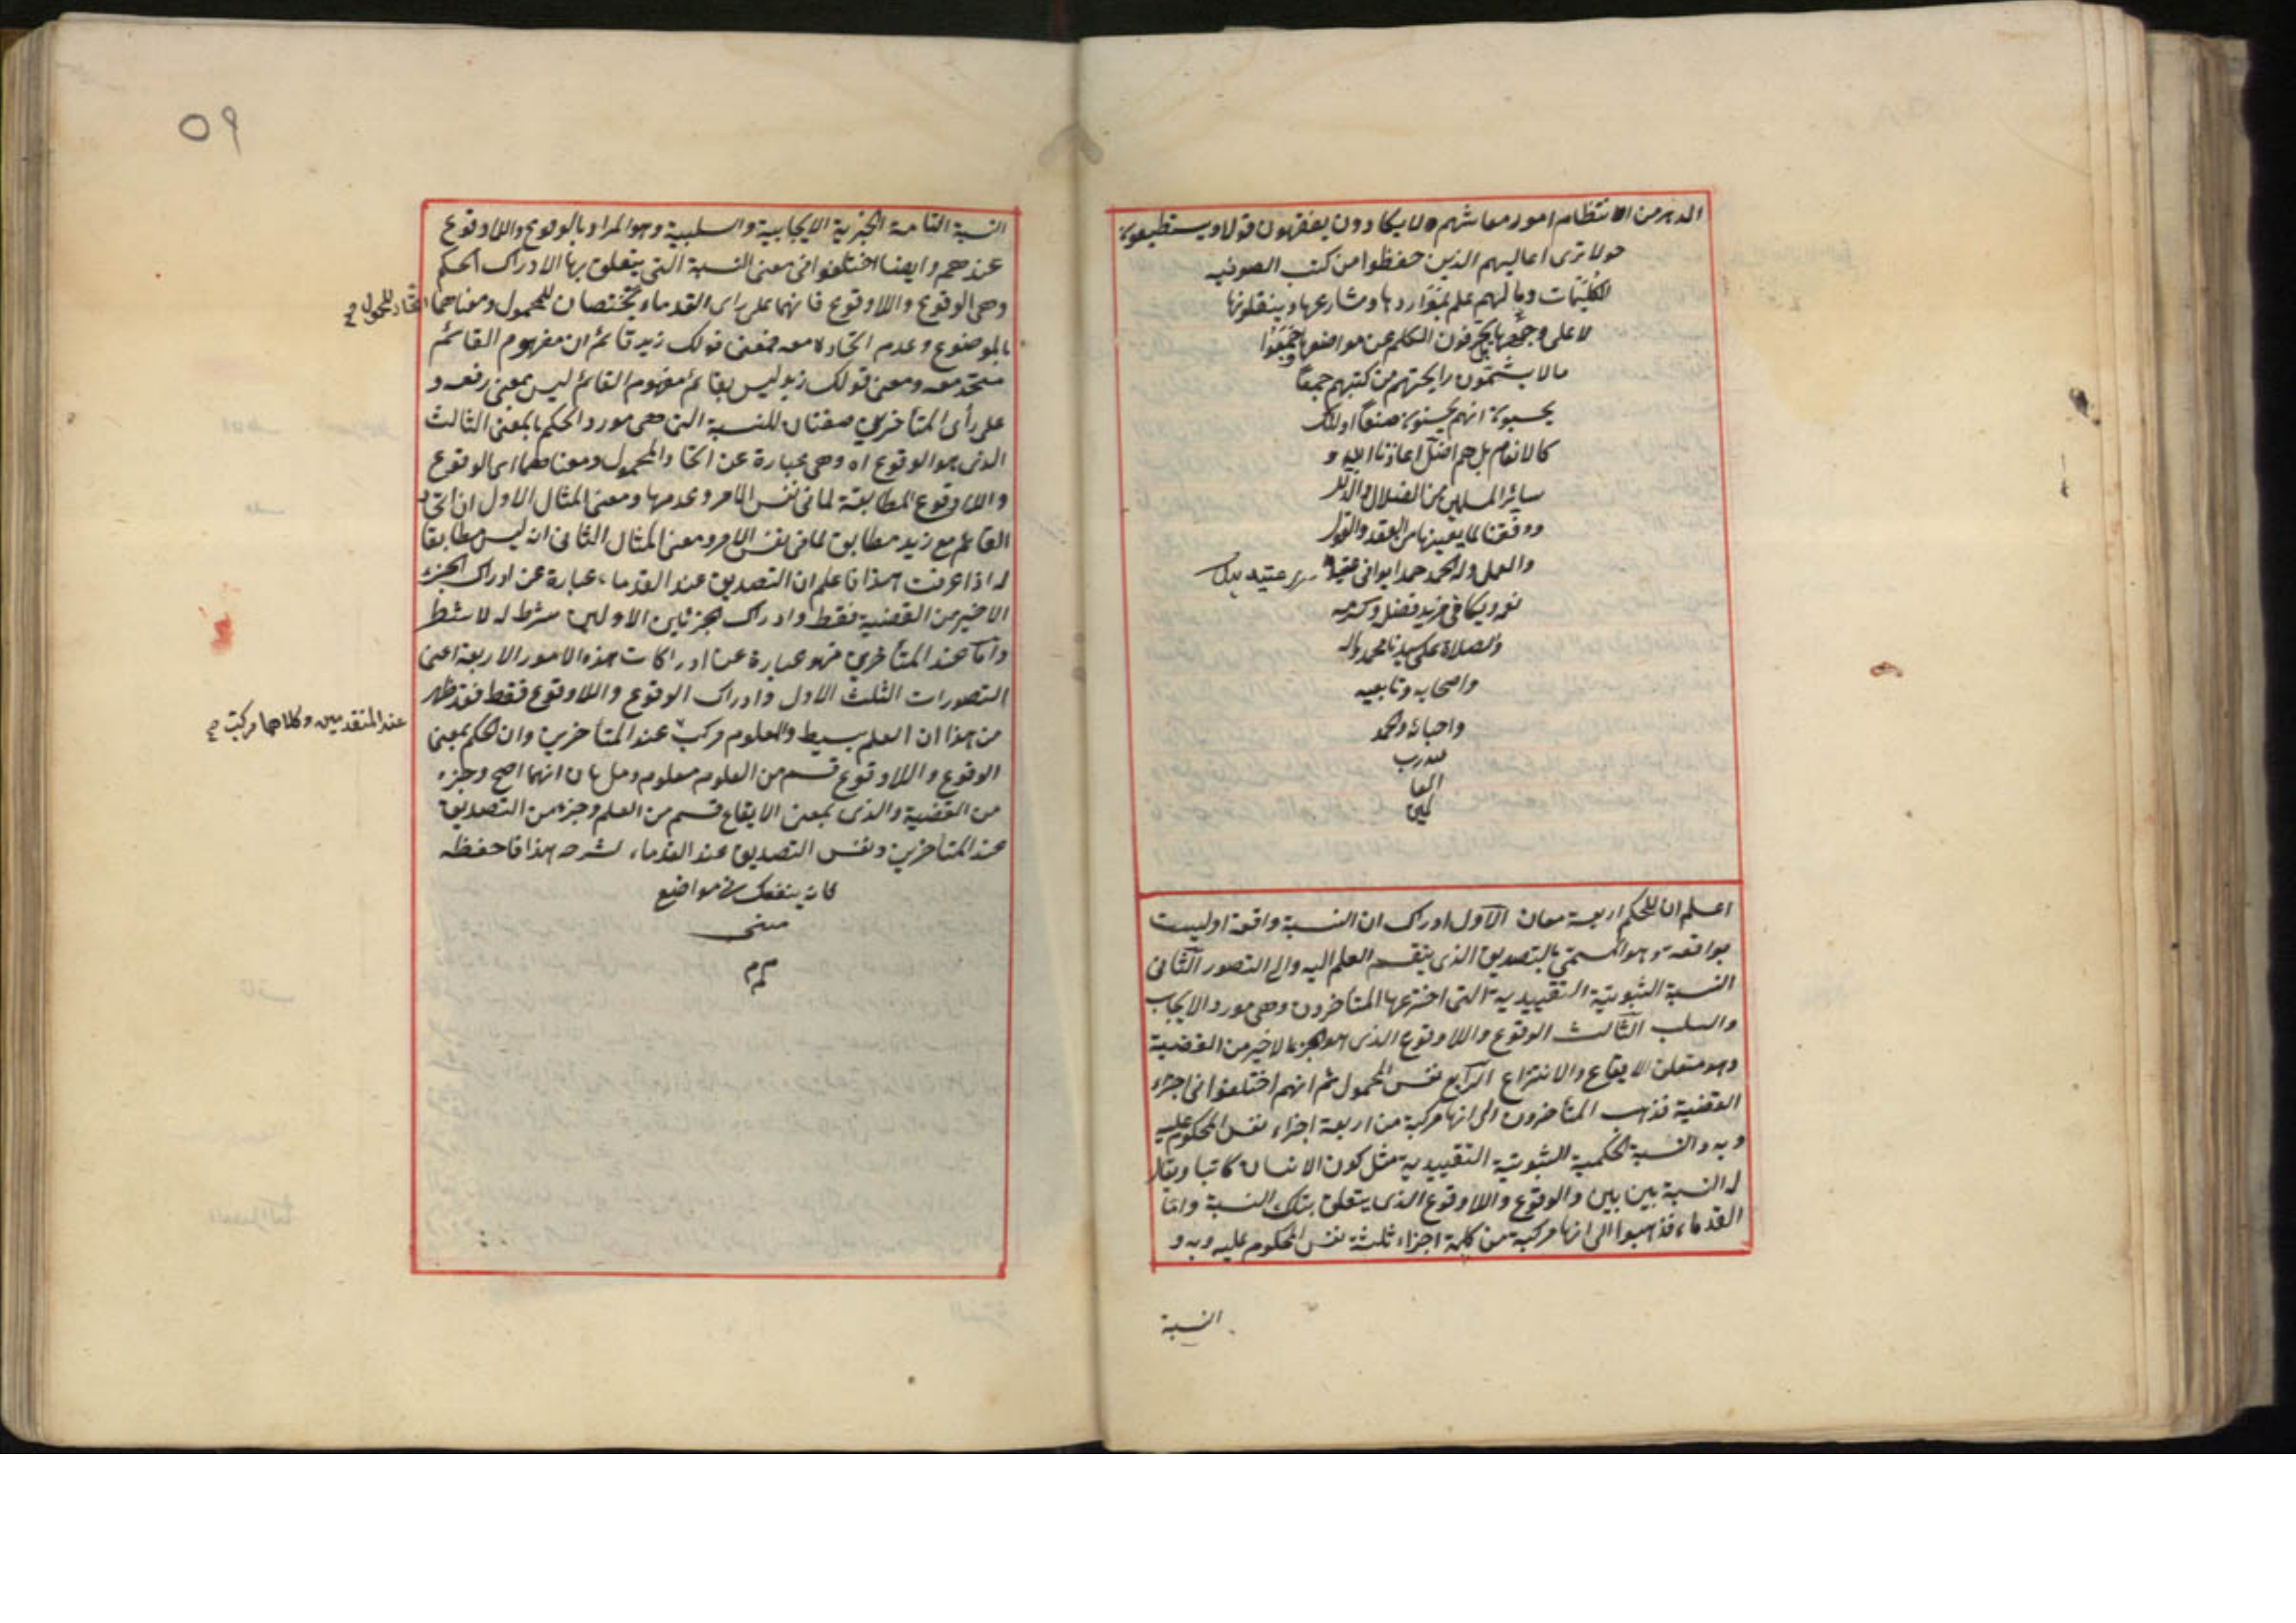 الدهر من الانتظام امور معاشهم ولا يكادون يفقهون قولا ويستطيعون
حولا ترى اعاليهم الذين حفظوا من كتب الصوفيه
الكليمات وما لهم علم بمواردها ومشارعها وينقلونها
لا على وجهها يحرفون الكلم عن مواضعها
مالا يشمون رايحتهم من كتبهم جميعا
يحسبون انهم يحسنون صنعا اولئك
كالانعام بل هم اضل اعاذنا الله و
سائر المسلمين من الضلال والزلل
ووفقنا لما يعيننا من العقد والقول
والعمل وله الحمد حمدا يوافى
نعمه ويكافى مزيد فضله وكرمه
والصلاة على سيدنا محمد واله
واصحابه وتابعيه
واحبائه والحمد
لله رب
العا
لمين
اعلم ان للحكم اربعة معان الاول ادراك ان النسبة واقعة او ليست
بواقعة وهو المسمى بالتصديق الذى ينقسم العلم اليه والى التصور الثانى
النسبة الثبوتية التقييدية التى اخترعها المتاخرون وهى مورد الايجاب
والسلب الثالث الوقوع واللاوقوع الذى هو الجزء الاخير من القضية
وهو متعلق الايقاع والانتزاع الرابع نفس المحمول ثم انهم اختلفوا فى اجزاء
القضية فذهب المتاخرون الى انها مركبة من اربعة اجزاء نفس المحكوم عليه
وبه والنسبة الحكمية الثبوتية التقييدية مثل كون الانسان كاتبا ويقال
له النسبة بين بين والوقوع واللاوقوع الذى يتعلق بتلك النسبة واما
القدماء فذهبوا الى انها مركبة من اجزاء ثلثة نفس المحكوم عليه وبه و
النسبة
٥٩
النسبة التامة الخبرية الايجابية والسلبية وهو المراد بالوقوع واللاوقوع
عندهم وايضا اختلفوا فى معنى النسبة التى يتعلق بها الادراك الحكم
وهى الوقوع واللاوقوع فانهما على راى القدماء يختصان للمحمول ومعناهما اتحاد المحمول صح
بالموضوع وعدم اتحاده معه فمعنى قولك زيد قائم ان مفهوم القائم
متحد معه ومعنى قولك زيد ليس بقائم مفهوم القائم ليس بمعنى رفعه و
على رأى المتأخرين صفتان للنسبة التى هى مورد الحكم بالمعنى الثالث
الذى هو الوقوع اه وهى عبارة عن اتحاد المحمول ومعناهما اى الوقوع
واللاوقوع المطابقة لما فى نفس الامر وعدمها ومعنى المثال الاول ان اتحاد
القائم مع زيد مطابق لما فى نفس الامر ومعنى المثال الثانى انه ليس مطابقا
له اذا عرفت هذا فاعلم ان التصديق عند القدماء عبارة عن ادراك الجزء
الاخير من القضية فقط وادراك الجزئين الاولين شرط له لا شطر
واما عند المتأخرين فهو عبارة عن ادراكات هذه الامور الاربعة اعنى
التصورات الثلث الاول وادراك الوقوع واللاوقوع فقط فقد ظهر
من هذا ان العلم بسيط والمعلوم مركب عند المتأخرين وان الحكم بمعنى
عند المتقدمين وكلاهما مركب صح
الوقوع واللاوقوع قسم من المعلوم وجزء
من القضية والذى بمعنى الايقاع قسم من العلم وجزء من التصديق
عند المتاخرين ونفس التصديق عند القدماء هذا فاحفظه
فانه ينفعك فى مواضع
م م